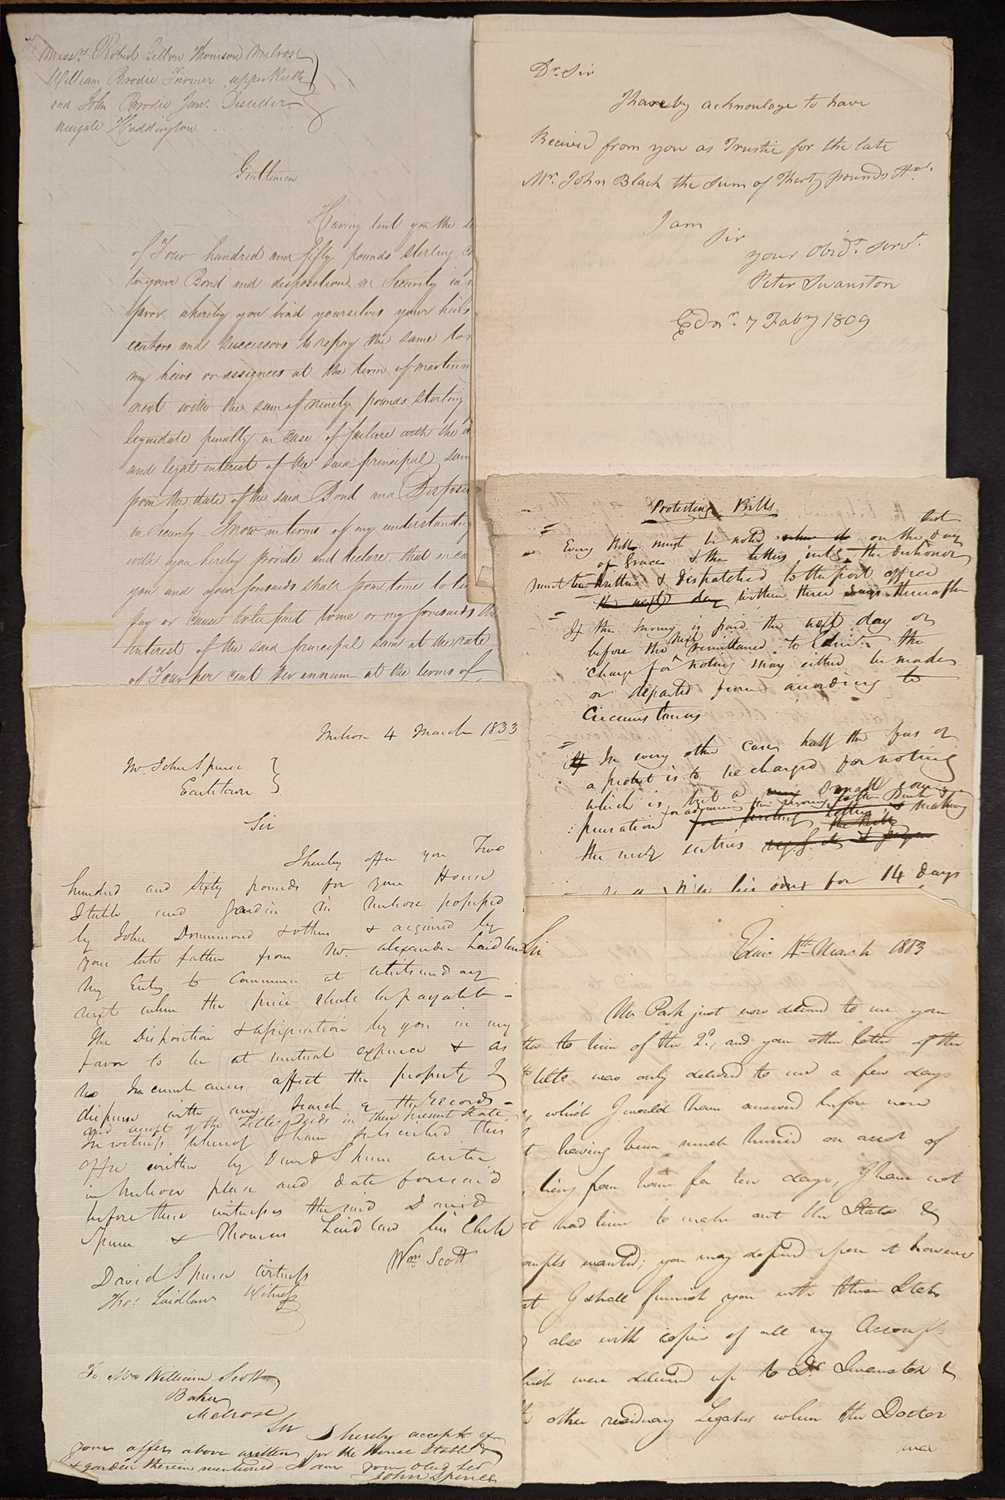 Messrs Robert Thomson Melrose
William Brodie Farmer upper Keith
and John Brodie Junr. Distiller
Nungate Haddington
Gentlemen
Having lent you the
of Four hundred and fifty pounds sterling
to your Bond and disposition in Security in
favor whereby you bind yourselves your heirs
and successors to repay the same to
my heirs or assignees at the term of martinm
next with the sum of ninety pounds sterling
liquidate penalty in case of failure with the
and legal interest of the said principal sum
from the date of the said Bond and Disposi
in Security I now in terms of my understanding
with you hereby provide and declare that in case
you and your foresaids shall from time to time
pay or cause to be paid to me or my foresaids the
interest of the said principal sum at the rate
of Four per cent per annum at the terms of
Dr. Sir
I hareby acknoulage to have
Received from you as Trustie for the late
Mr. John Black the Sum of Tharty pounds
I am
Sir
your Obidt. Servt.
Peter Swanston
Edinr. 7 Fabry 1809
Protesting Bills
Every Bill must be noted on the last day
of Grace & the letters the Dishonor
must be written & dispatched to the post office
the next day within three days thereafter
If the money is paid the next day or
before the next remittance to Edinr. the
charge for noting may either be made
or departed from according to
Circumstances
If In every other case half the fees of
a protest is to be charged for noting
which is but a small com
pensation
the entries
for 14 days
Melrose 4 March 1833
Mr. John Spence
Earlstown
Sir
I hereby offer you Two
hundred and Sixty pounds for your House
Stable and Garden in Melrose possessed
by John Drummond & others & acquired by
your late father from Mr. Alexander Laidlaw
My Entry to Commence at Whitsunday
next when the price shall be payable
The Disposition & assignation by you in my
favor to be at mutual expence & as
no Incumbrances affect the property I
dispense with any Search of the records
and accept of the Title deeds in their present State
In witness whereof I have subscribed this
offer written by David Spence writer
in Melrose place and date foresaid
before these witnesses the said David
Spence & Thomas Laidlaw his Clerk
David Spence witness
Wm. Scott
Thos. Laidlaw Witness
To Mr. William Scott
Baker
Melrose
Sir I hereby accept of
your offer above written for the House Stable
& garden therein mentioned I am your Obed Ser
John Spence
Edinr. 4th March 1813
Sir
Mr Park just now delivered to me your
letter to him of the 2d, and your other letter of the
date was only delivered to me a few days
which I would have answered before now
having been much hurried on acct of
being from home for ten days, I have not
had time to make out the State &
wanted; you may depend upon it however
I shall furnish you with these States
also with copies of all my Accompts
which were delivered up to Dr. Swanston &
other residuary Legatees when the Doctor
was